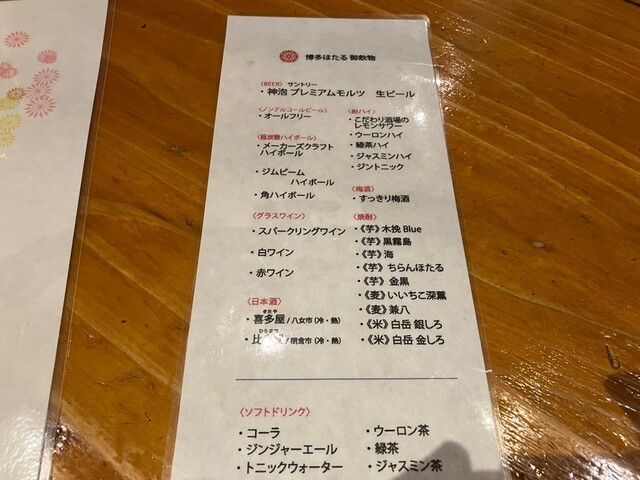 博多ほたる 御飲物
〈BEER〉 サントリー
・神泡 プレミアムモルツ 生ビール
〈ノンアルコールビール〉
・オールフリー
〈超炭酸ハイボール〉
・メーカーズクラフト
ハイボール
・ジムビーム
ハイボール
・角ハイボール
〈グラスワイン〉
・スパークリングワイン
・白ワイン
・赤ワイン
〈日本酒〉
きたや
・喜多屋 / 八女市 (冷・熱)
ひらまつ
・比 / 朝倉市 (冷・熱)
〈酎ハイ〉
・こだわり酒場の
レモンサワー
・ウーロンハイ
・緑茶ハイ
・ジャスミンハイ
・ジントニック
〈梅酒〉
・すっきり梅酒
〈焼酎〉
・《芋》木挽 Blue
・《芋》黒霧島
・《芋》海
・《芋》ちらんほたる
・《芋》金黒
・《麦》いいちこ深薫
・《麦》兼八
・《米》白岳 銀しろ
・《米》白岳 金しろ
〈ソフトドリンク〉
・コーラ
・ジンジャーエール
・トニックウォーター
・ウーロン茶
・緑茶
・ジャスミン茶